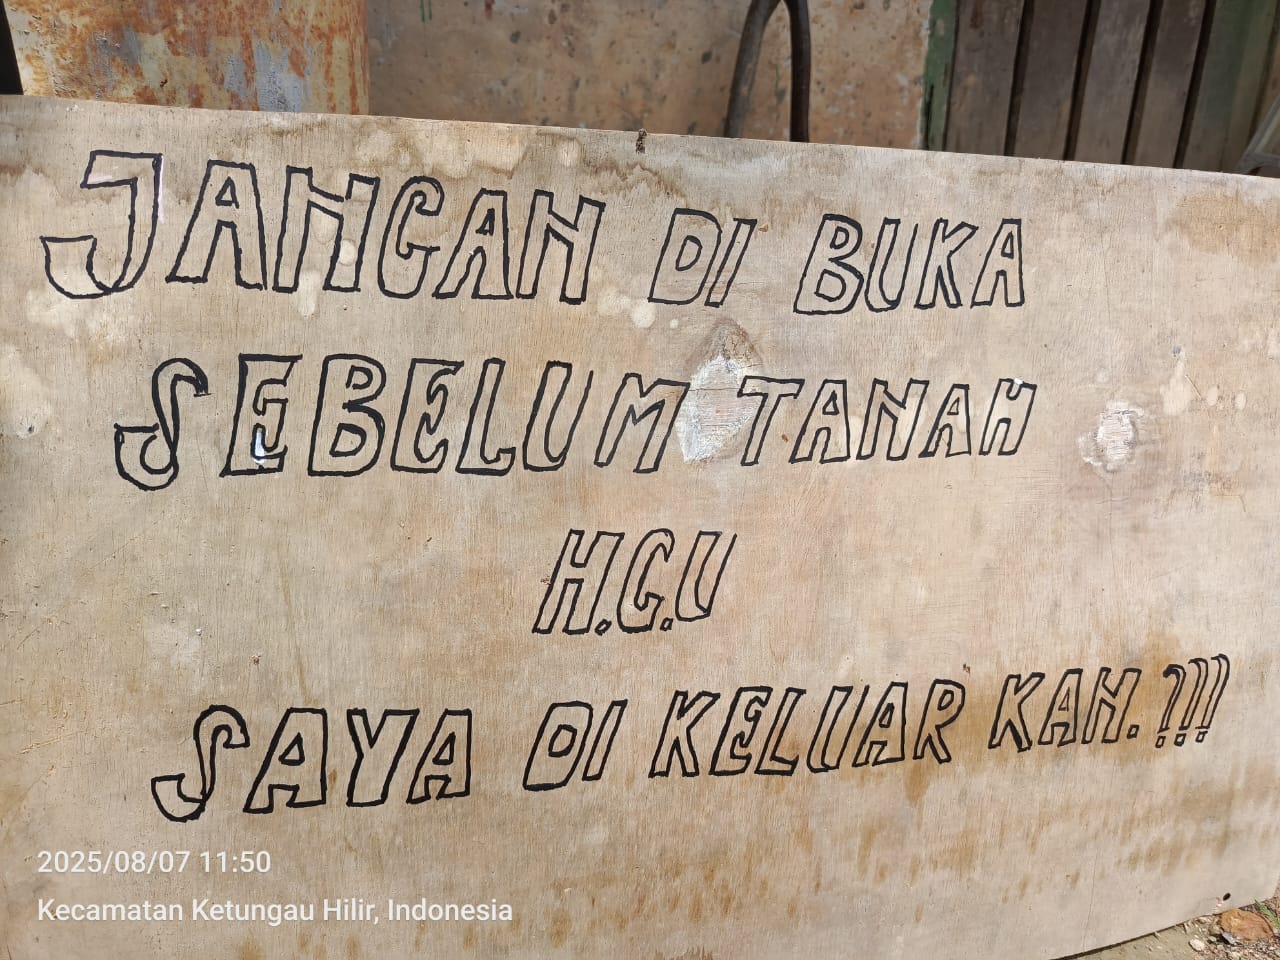 JANGAN DI BUKA
SEBELUM TANAH
H.G.U
SAYA DI KELUAR KAN.?!!!
2025/08/07 11:50
Kecamatan Ketungau Hilir, Indonesia